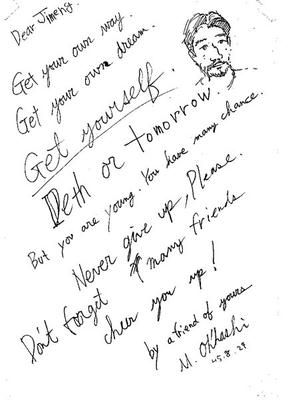 Dear Jimeng.
Get your own way.
Get your own dream.
Get yourself.
Deth or tomorrow.
But you are young. You have many chance.
Never give up, Please.
Don't forget many friends
cheer you up!
by a friend of yours
M. Okhashi
45.8.29